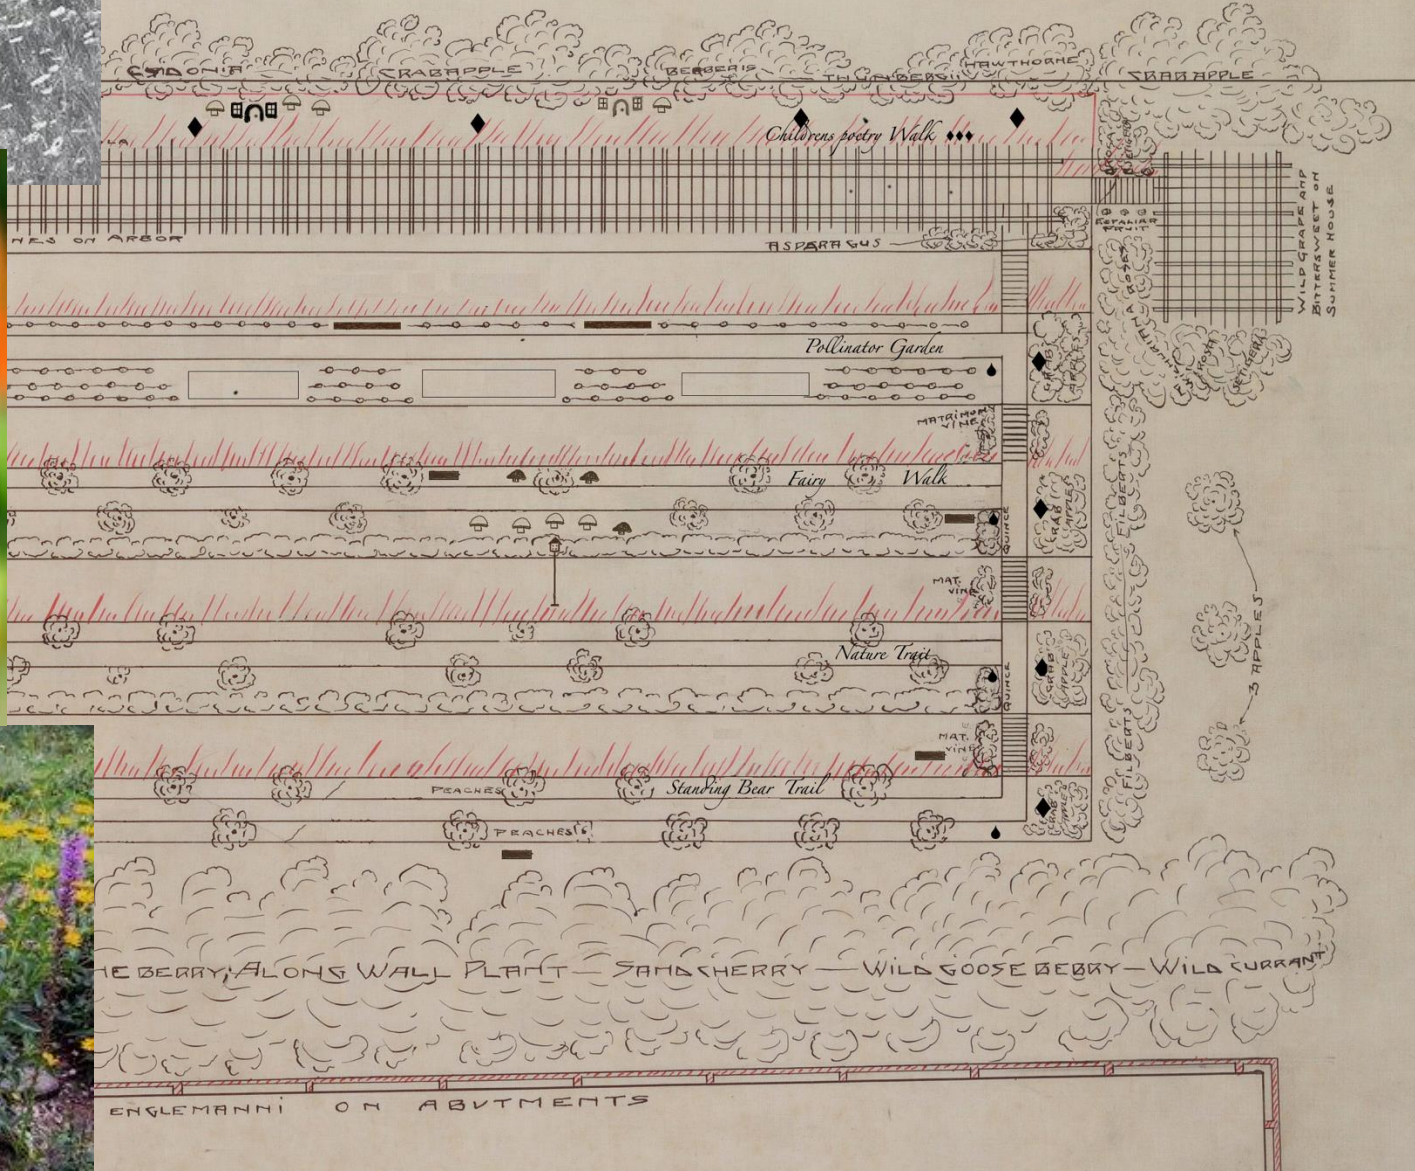 CYDONIA
CRABAPPLE
BERBERIS
THUNBERGII
HAWTHORNE
CRABAPPLE
Childrens poetry Walk
NES ON ARBOR
ASPARAGUS
WILD GRAPE AND
BITTERSWEET ON
SUMMER HOUSE
Pollinator Garden
CRAB
APPLES
SETIGERA
MATRIMONY
VINE
Fairy Walk
CRAB
APPLES
FILBERTS
QUINCE
MAT.
VINE
3 APPLES
Nature Trail
CRAB
APPLE
QUINCE
MAT.
VINE
FILBERTS
PEACHES
Standing Bear Trail
CRAB
APPLES
PEACHES
HE BERRY; ALONG WALL PLANT — SAND CHERRY — WILD GOOSE BERRY — WILD CURRANT
ENGLEMANNI ON ABUTMENTS